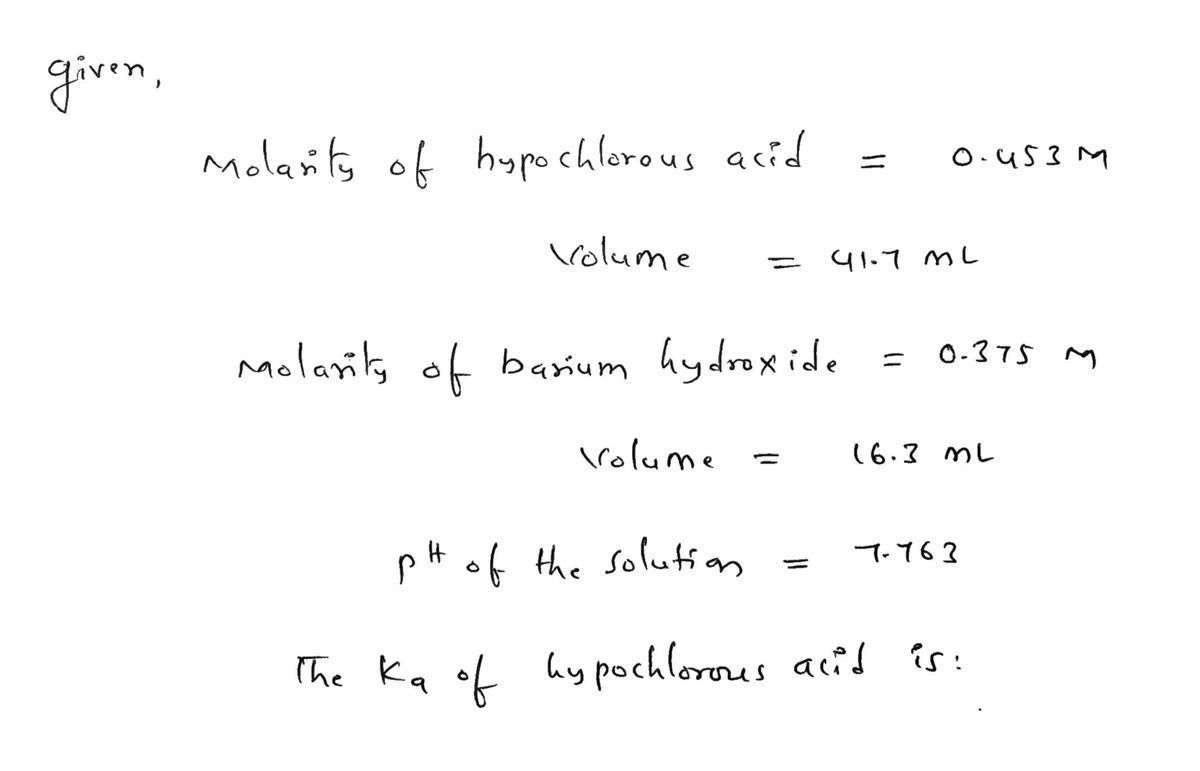 given,
Molarity of hypochlorous acid = 0.453 M
Volume = 41.7 mL
Molarity of barium hydroxide = 0.375 M
Volume = 16.3 mL
pH of the solution = 7.763
The Ka of hypochlorous acid is: